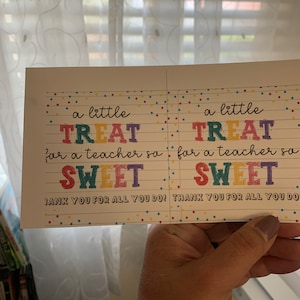 a little
TREAT
for a teacher so
SWEET
HANK YOU FOR ALL YOU DO!
a little
TREAT
for a teacher so
SWEET
THANK YOU FOR ALL YOU DO